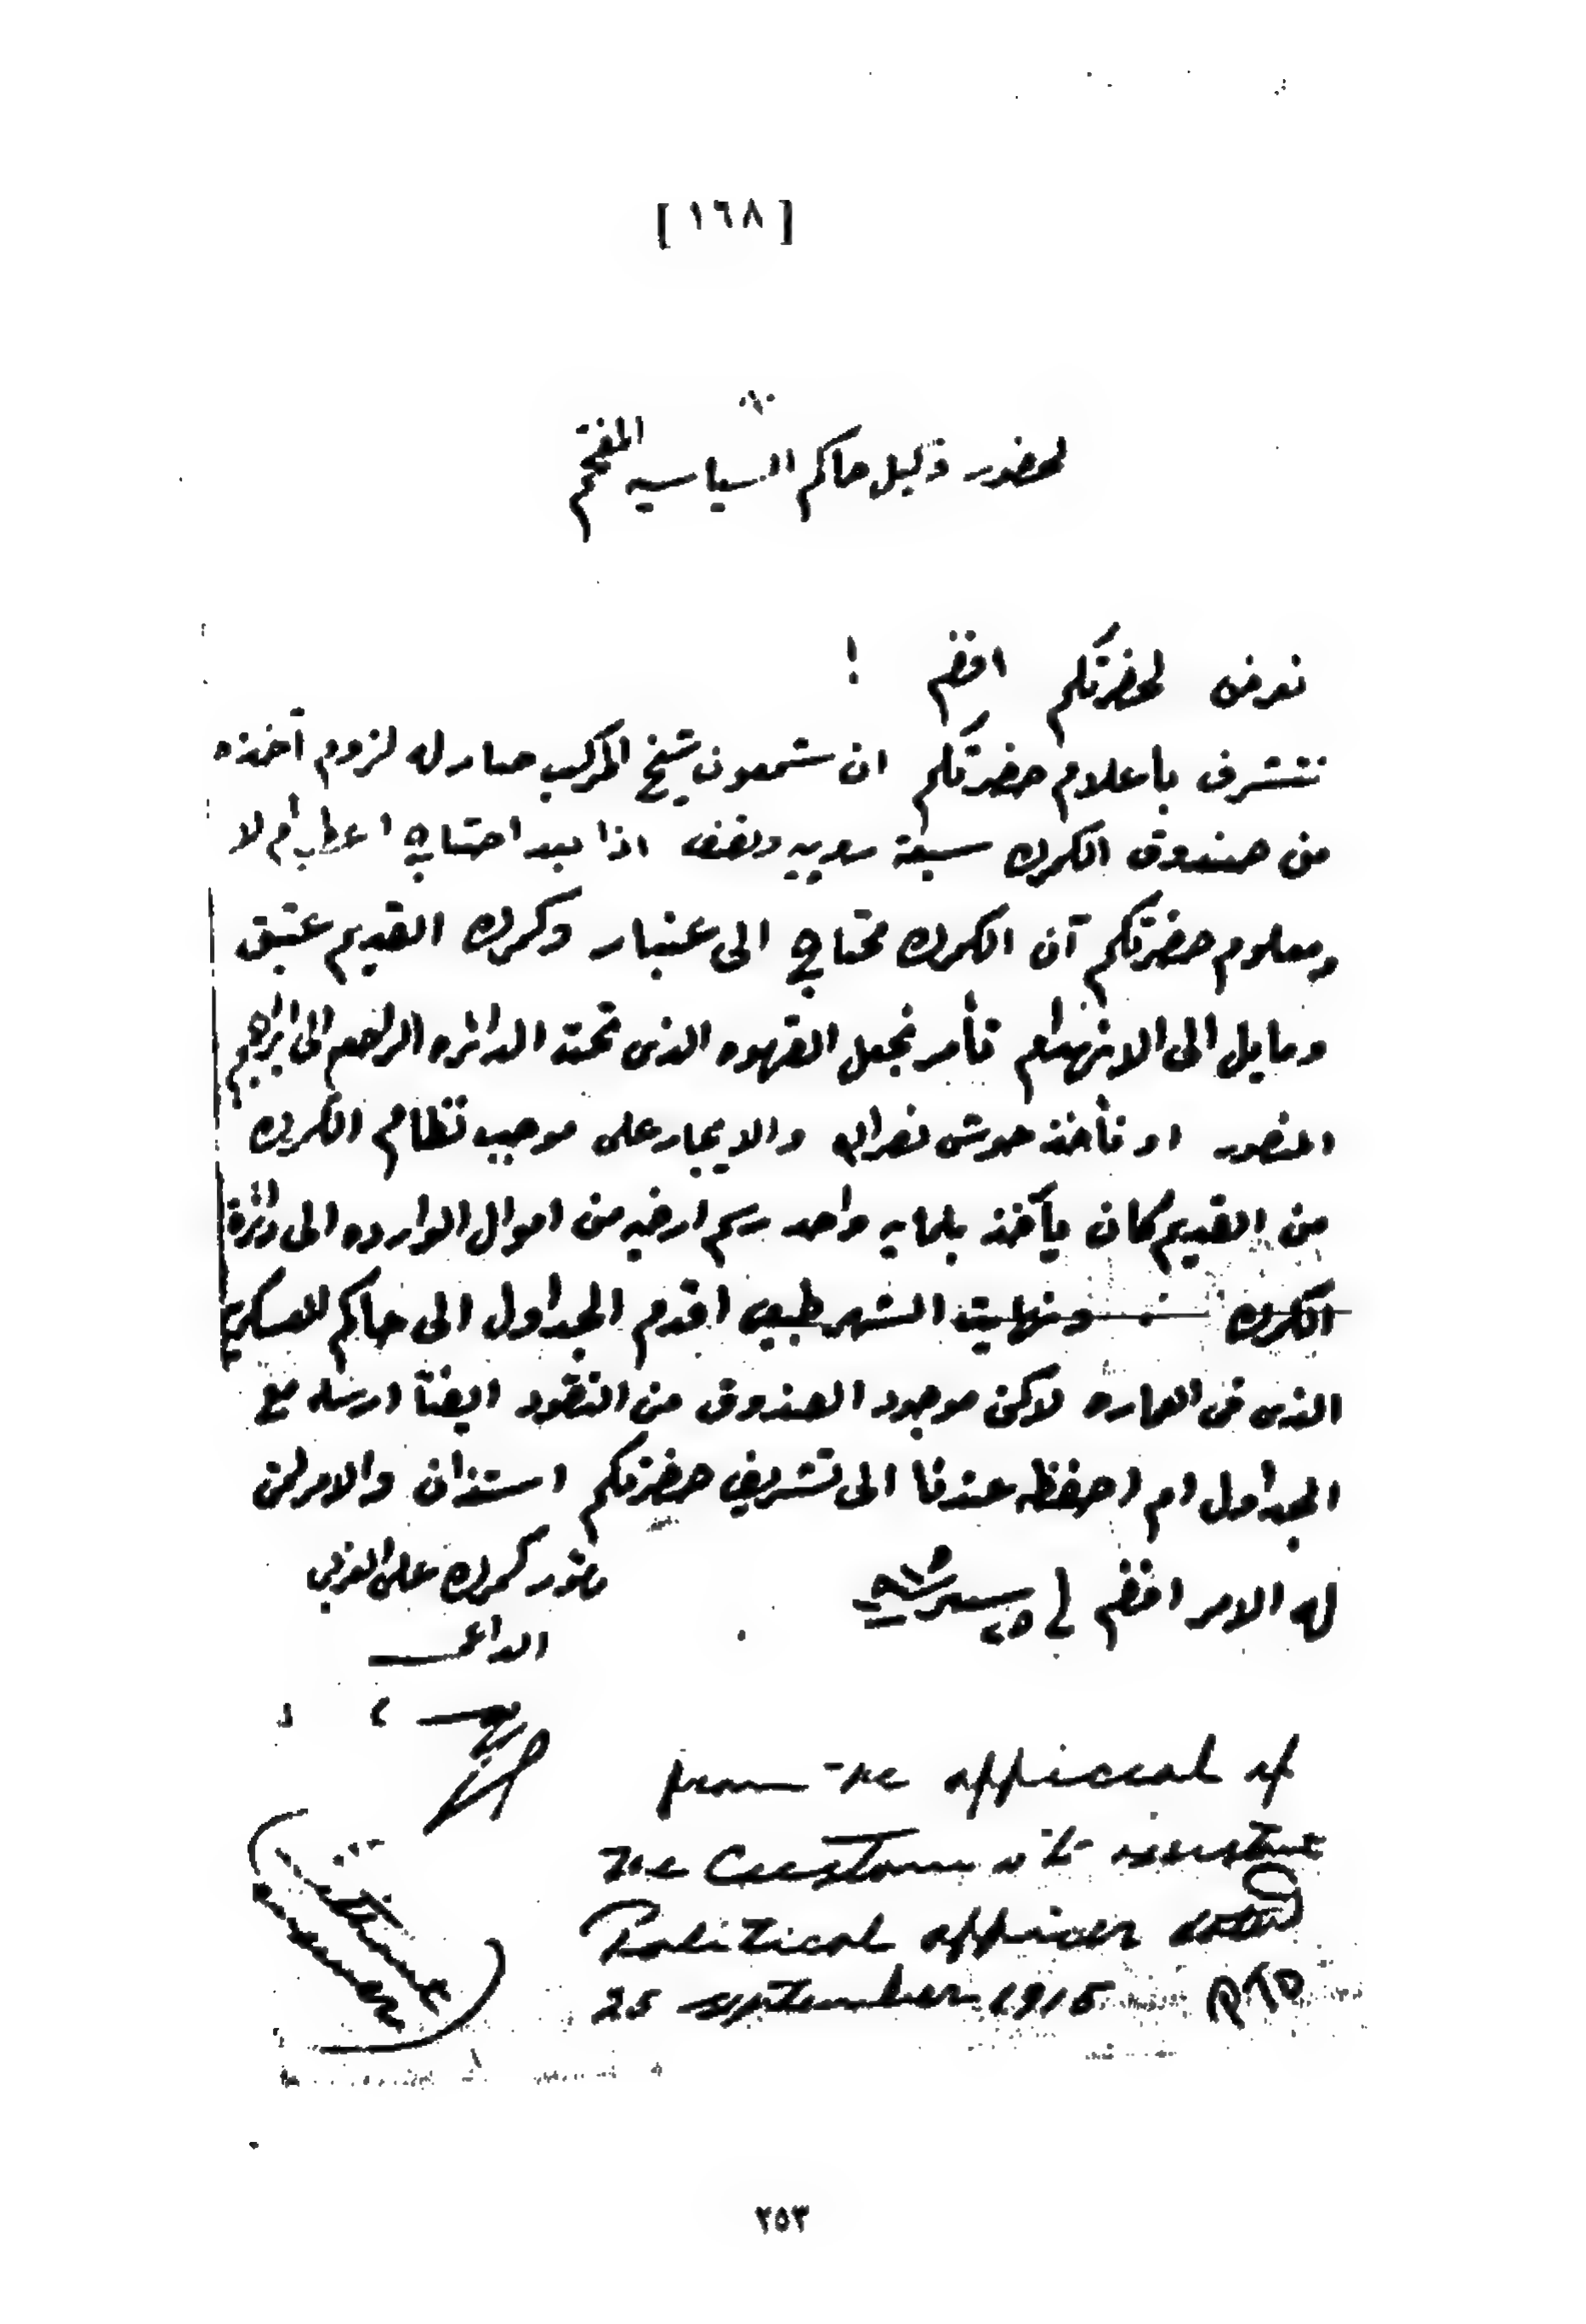 [ ١٦٨ ]
لحضور وكيل حاكم السياسيه المفخم
نعرض لحضرتكم افندم !
نتشرف بأعلام حضرتكم ان شمعون شيخ المركب صار له لزوم آخذه
من صندوق الكمرك سبعة روبيه ونصف اذا بعد احتاج اعطيه ام لا
ومعلوم حضرتكم آن الكمرك محتاج الى عنبار وكمرك القديم عتيق
ومايل الى الانهدام تأمر نجعل القهوه الذى تحت الدائره الراجع الى ابراهيم
المنصور او نأخذ حوش نصرالله والايجار على موجب نظام الكمرك
من القديم كان يأخذ بلمايه واحد رسم ارضيه من اموال الوارده الى دائرة
الكمرك ونهايت الشهر طبعى اقدم الجداول الى حاكم العسكريه
الذى فى العماره لاكن موجود الصندوق من النقود ايضآ ارسله مع
الجداول ام احفظه عندنا الى تشريف حضرتكم استذان والامر لمن
له الامر افندم فى ٢٥ سبتمبر ٩١٥
مأمور كمرك على الغربى
الداعى
from the official of
the Custom to assistant
Political officer
25 september 1915 PTO
٢٥٣